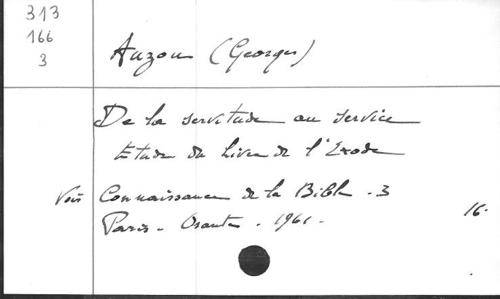 313
166
3
Auzou (Georges)
De la servitude au service
Etude du Livre de l'Exode
Voir Connaissance de la Bible . 3
Paris - Orante - 1961 -
16.